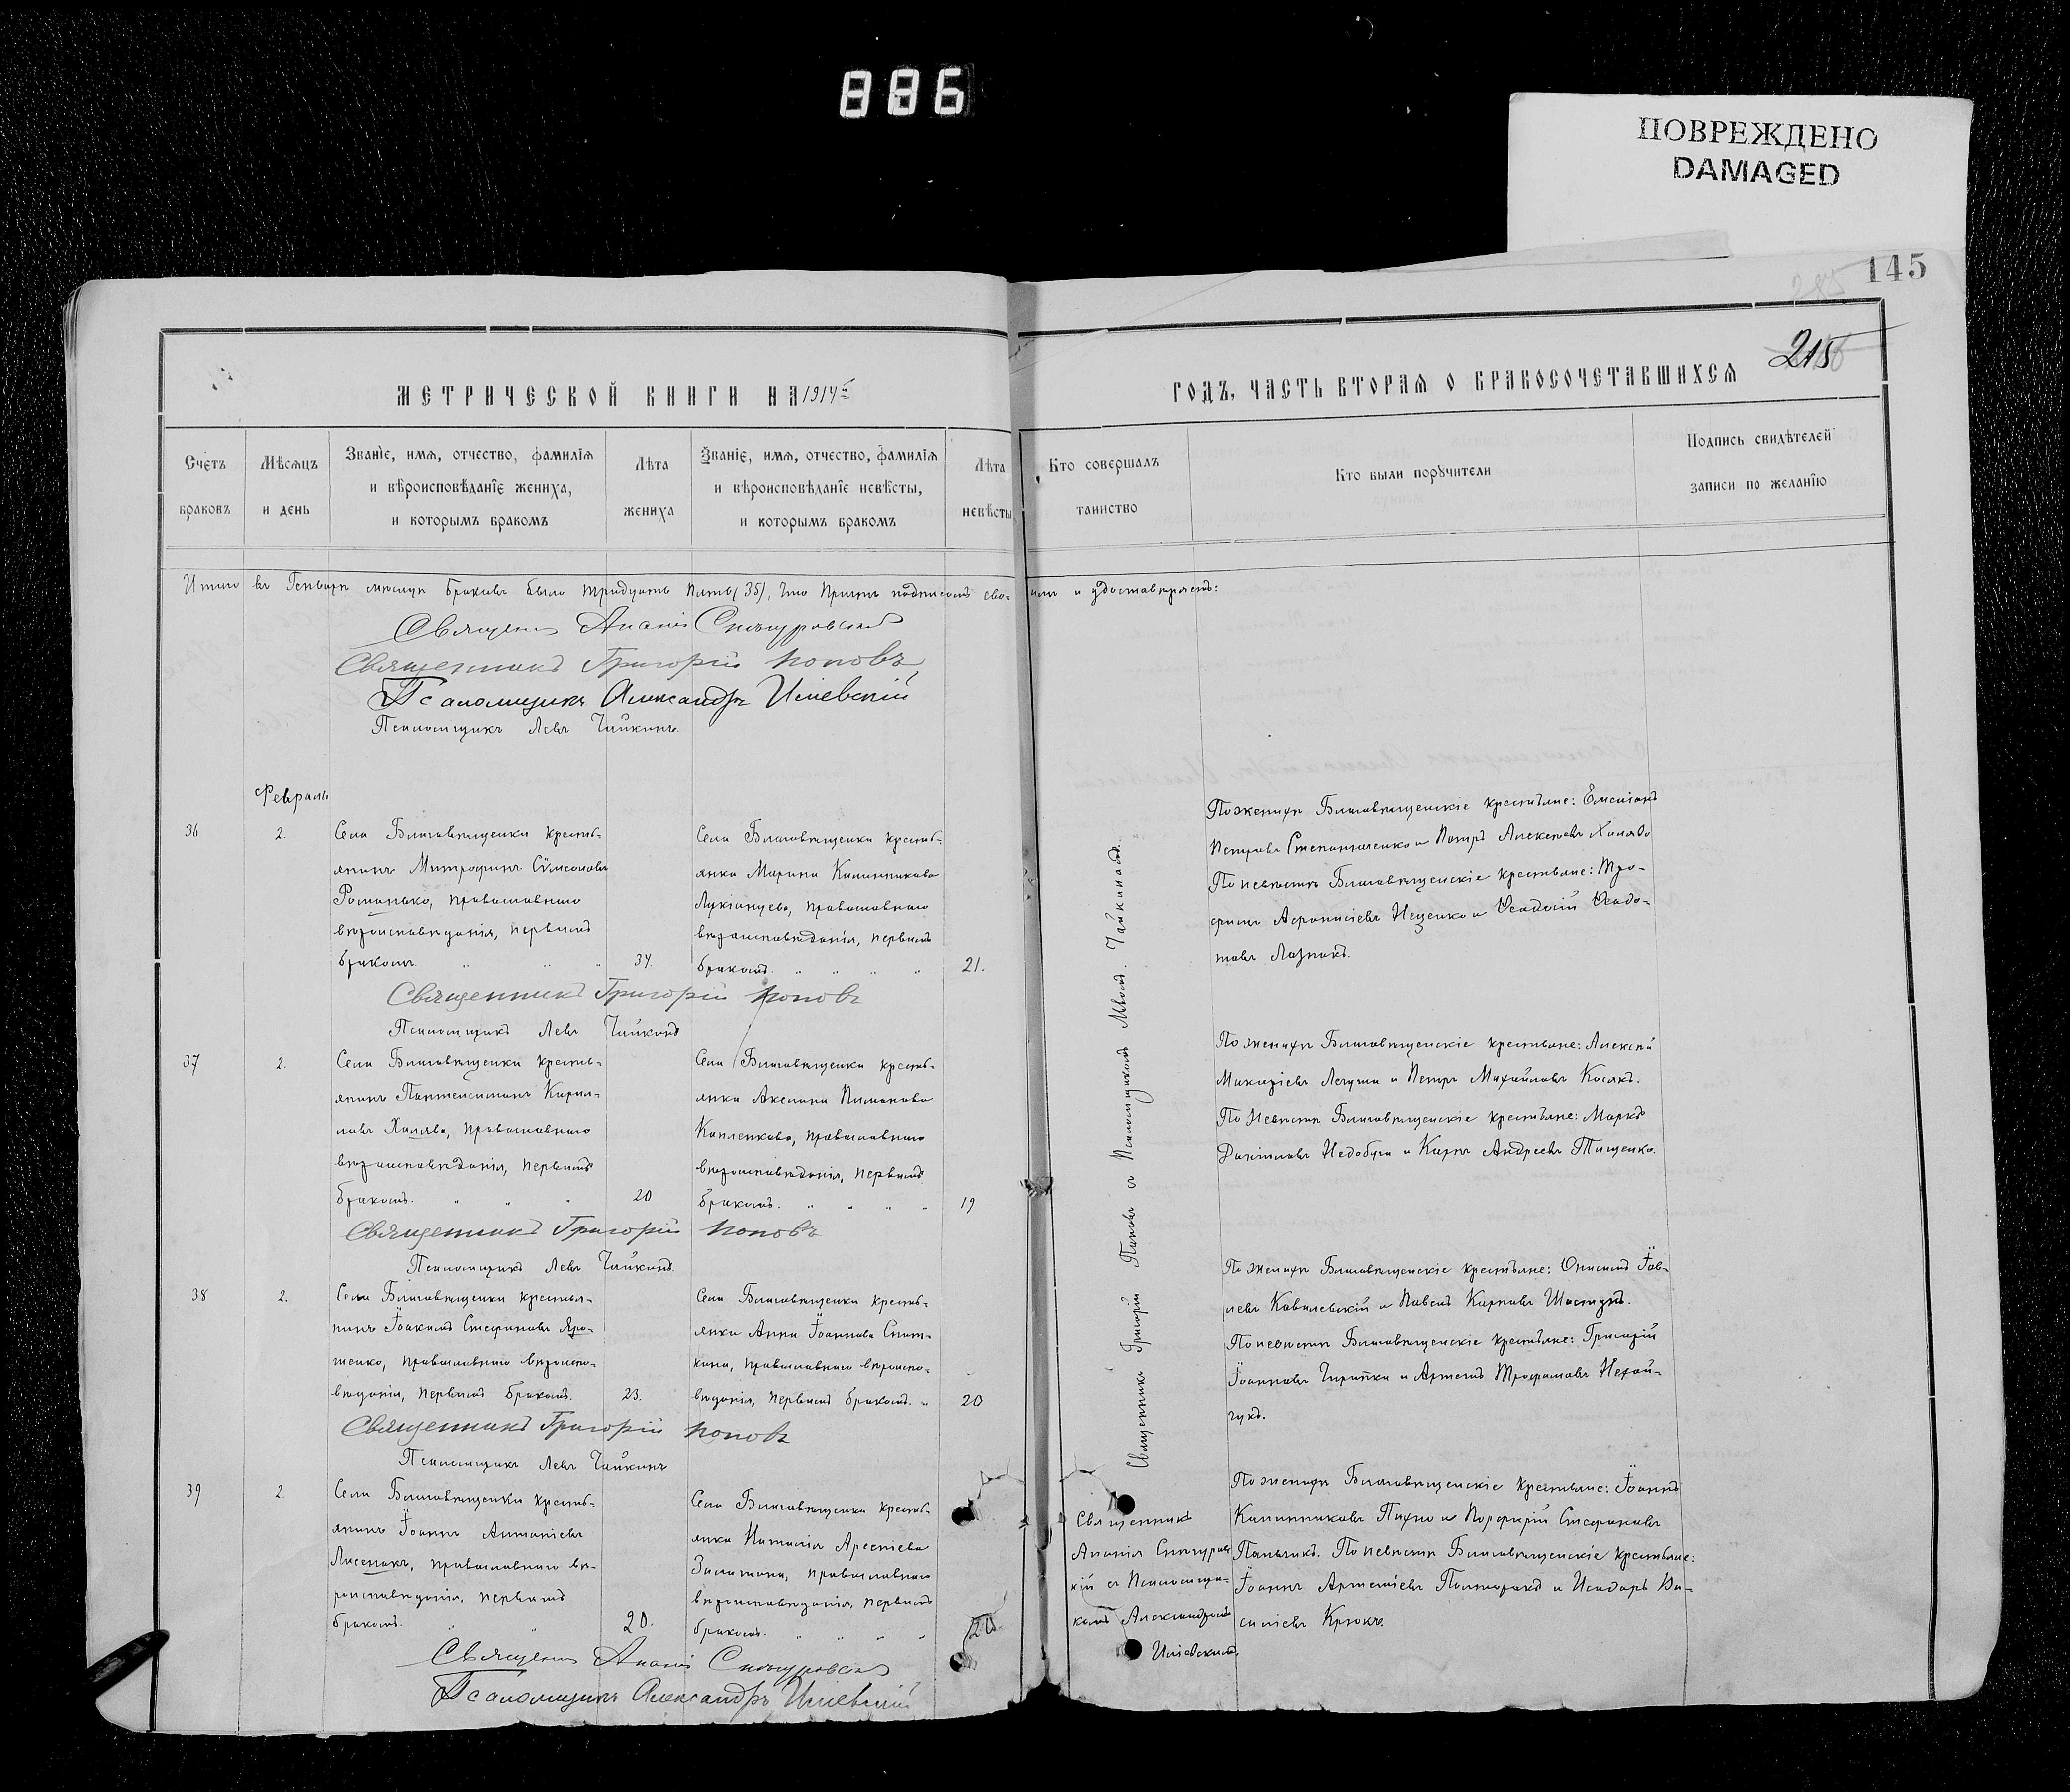 886
ПОВРЕЖДЕНО
DAMAGED
145
215
МЕТРИЧЕСКОЙ КНИГИ НА 1914 г.
ГОДЪ, ЧАСТЬ ВТОРАЯ О БРАКОСОЧЕТАВШИХСЯ
Счетъ браковъ
Мѣсяцъ и день
Званіе, имя, отчество, фамилія
и вѣроисповѣданіе жениха,
и которымъ бракомъ
Лѣта жениха
Званіе, имя, отчество, фамилія
и вѣроисповѣданіе невѣсты,
и которымъ бракомъ
Лѣта невѣсты
Кто совершалъ таинство
Кто были поручители
Подпись свидѣтелей
записи по желанію
Итого въ Генварѣ мѣсяцѣ браковъ было тридцать пять (35), что Причтъ подписомъ сво- имъ и удостовѣряетъ:
Священ Ананія
Священникъ Григорій Поповъ
Псаломщикъ Александръ Иліевскій
Псаломщикъ Левъ Чайкинъ
Февраль
36
2.
Села Благовѣщенки кресть-
янинъ Митрофанъ Сѵмеоновъ
Романько, православнаго
вѣроисповѣданія, первымъ
бракомъ.
34.
Села Благовѣщенки кресть-
янка Марина Каллиникова
Лукіанцева, православнаго
вѣроисповѣданія, первымъ
бракомъ.
21.
По женихѣ Благовѣщенскіе крестьяне: Емеліанъ
Петровъ Степаненко и Петръ Алексѣевъ Халява
По невѣстѣ Благовѣщенскіе крестьяне: Тро-
фимъ Афанасіевъ Иценко и Феодосій Феодо-
товъ Лазникъ.
Священникъ Григорій Поповъ
Псаломщикъ Левъ Чайкинъ
37
2.
Села Благовѣщенки кресть-
янинъ Пантелеимонъ Кирил-
ловъ Халява, православнаго
вѣроисповѣданія, первымъ
бракомъ.
20
Села Благовѣщенки кресть-
янка Аксинія Пимонова
Капленкова, православнаго
вѣроисповѣданія, первымъ
бракомъ.
19
По женихѣ Благовѣщенскіе крестьяне: Алексѣй
Макаріевъ Легуша и Петръ Михайловъ Косякъ.
По невѣстѣ Благовѣщенскіе крестьяне: Маркъ
Даніиловъ Недобуга и Карпъ Андреевъ Тищенко.
Священникъ Григорій Поповъ
Псаломщикъ Левъ Чайкинъ
38
2.
Села Благовѣщенки крестья-
нинъ Іоакимъ Стефановъ Яро-
шенко, православнаго вѣроиспо-
вѣданія, первымъ бракомъ.
23.
Села Благовѣщенки кресть-
янка Анна Іоаннова Спат-
кана, православнаго вѣроиспо-
вѣданія, первымъ бракомъ.
20
По женихѣ Благовѣщенскіе крестьяне: Онисимъ Іов-
левъ Ковалевскій и Павелъ Карповъ Шастунъ.
По невѣстѣ Благовѣщенскіе крестьяне: Григорій
Іоанновъ Чирипка и Артемъ Трофимовъ Нечай-
чукъ.
Священникъ Григорій Поповъ съ Псаломщикомъ Львомъ Чайкинымъ.
Священникъ Григорій Поповъ
Псаломщикъ Левъ Чайкинъ
39
2.
Села Благовѣщенки кресть-
янинъ Іоаннъ Антоніевъ
Лисенакъ, православнаго вѣ-
роисповѣданія, первымъ
бракомъ.
20.
Села Благовѣщенки кресть-
янка Наталія Арсеніева
Золотона, православнаго
вѣроисповѣданія, первымъ
бракомъ.
20
Священникъ
Ананія
кій съ Псаломщи-
комъ Александромъ
Иліевскимъ.
По женихѣ Благовѣщенскіе крестьяне: Іоаннъ
Каллиниковъ Пихно и Порфирій Стефановъ
Панчикъ. По невѣстѣ Благовѣщенскіе крестьяне:
Іоаннъ Артеміевъ Полторакъ и Исидоръ Ва-
силіевъ Крюкъ.
Священ Ананія
Псаломщикъ Александръ Иліевскій